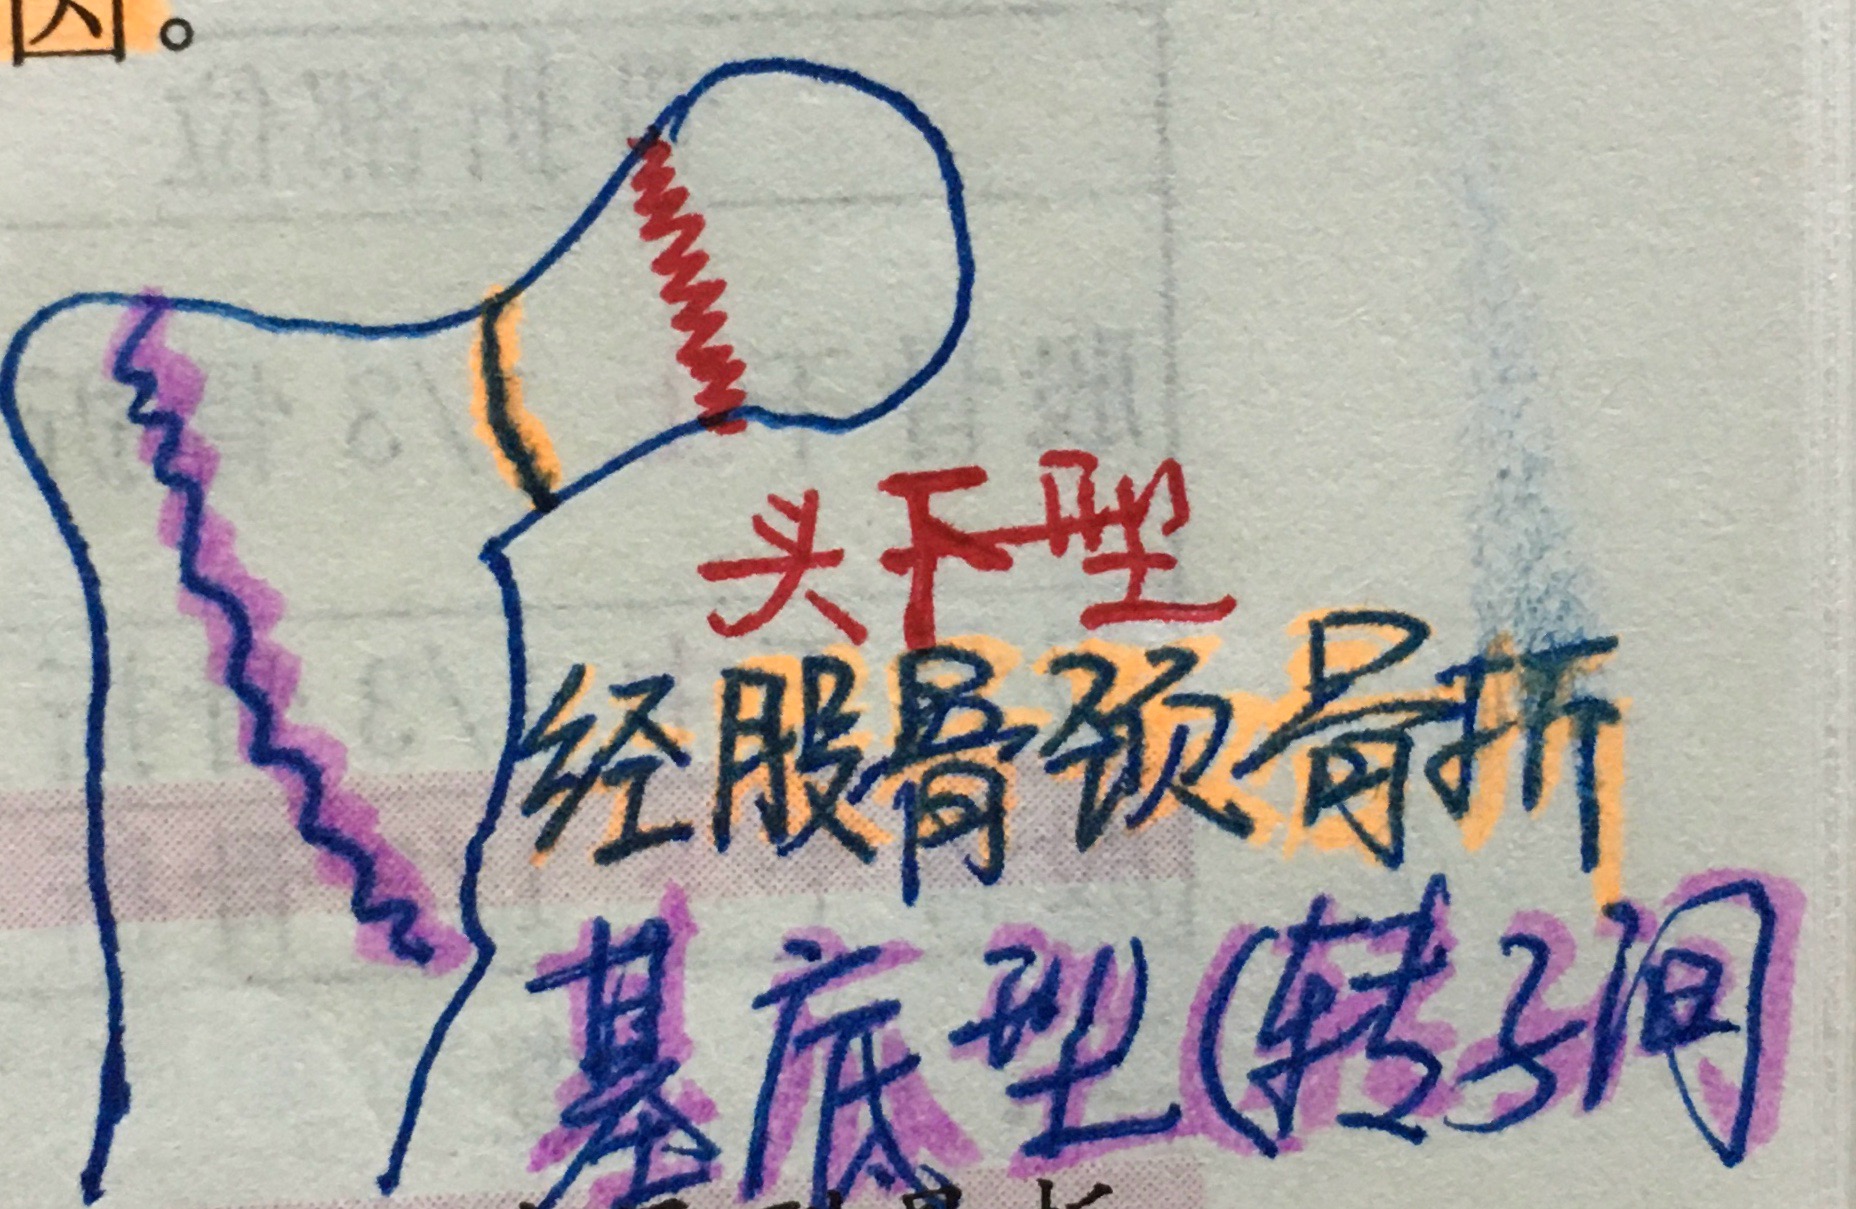 因。
头下型
经股骨颈骨折
基底型(转子间